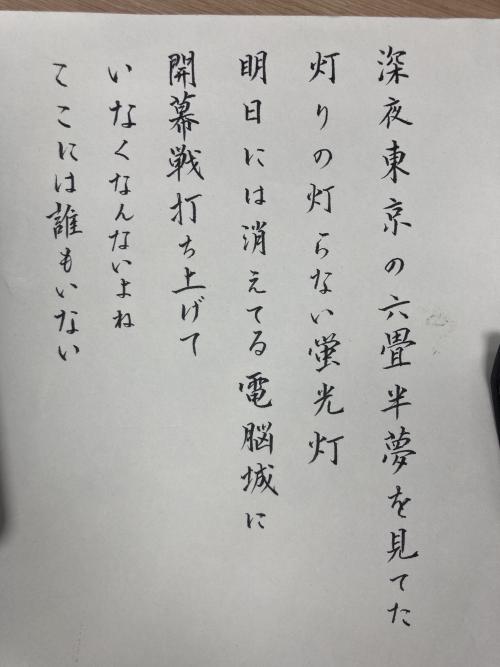 深夜東京の六畳半夢を見てた
灯りの灯らない蛍光灯
明日には消えてる電脳城に
開幕戦打ち上げて
いなくなんないよね
ここには誰もいない